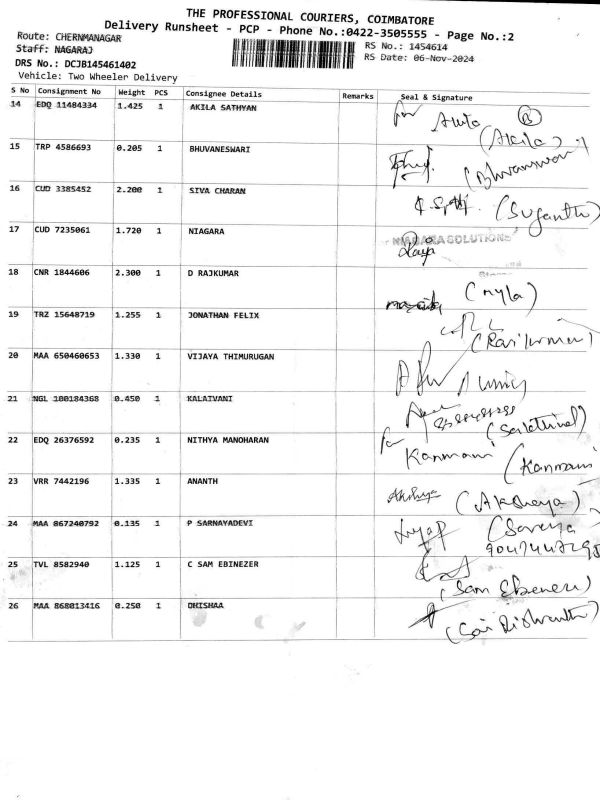 THE PROFESSIONAL COURIERS, COIMBATORE
Delivery Runsheet - PCP - Phone No.:0422-3505555 - Page No.:2
Route: CHERNMANAGAR
RS No.: 1454614
Staff: NAGARAJ
RS Date: 06-Nov-2024
DRS No.: DCJB145461402
Vehicle: Two Wheeler Delivery
S No Consignment No Weight PCS Consignee Details Remarks Seal & Signature
14 EDQ 11484334 1.425 1 AKILA SATHYAN for
(Akila)
15 TRP 4586693 0.205 1 BHUVANESWARI
16 CUD 3385452 2.200 1 SIVA CHARAN
(Suganthi)
17 CUD 7235061 1.720 1 NIAGARA
NIAGARA SOLUTIONS
18 CNR 1844606 2.300 1 D RAJKUMAR
(Myla)
19 TRZ 15648719 1.255 1 JONATHAN FELIX
20 MAA 650460653 1.330 1 VIJAYA THIMURUGAN
21 NGL 100184368 0.450 1 KALAIVANI
22 EDQ 26376592 0.235 1 NITHYA MANOHARAN for
Kanmani (Kanmani
23 VRR 7442196 1.335 1 ANANTH
Akshya (Akshaya)
24 MAA 867240792 0.135 1 P SARNAYADEVI
25 TVL 8582940 1.125 1 C SAM EBINEZER
(Sam Ebenezer)
26 MAA 868013416 0.250 1 DHISHAA